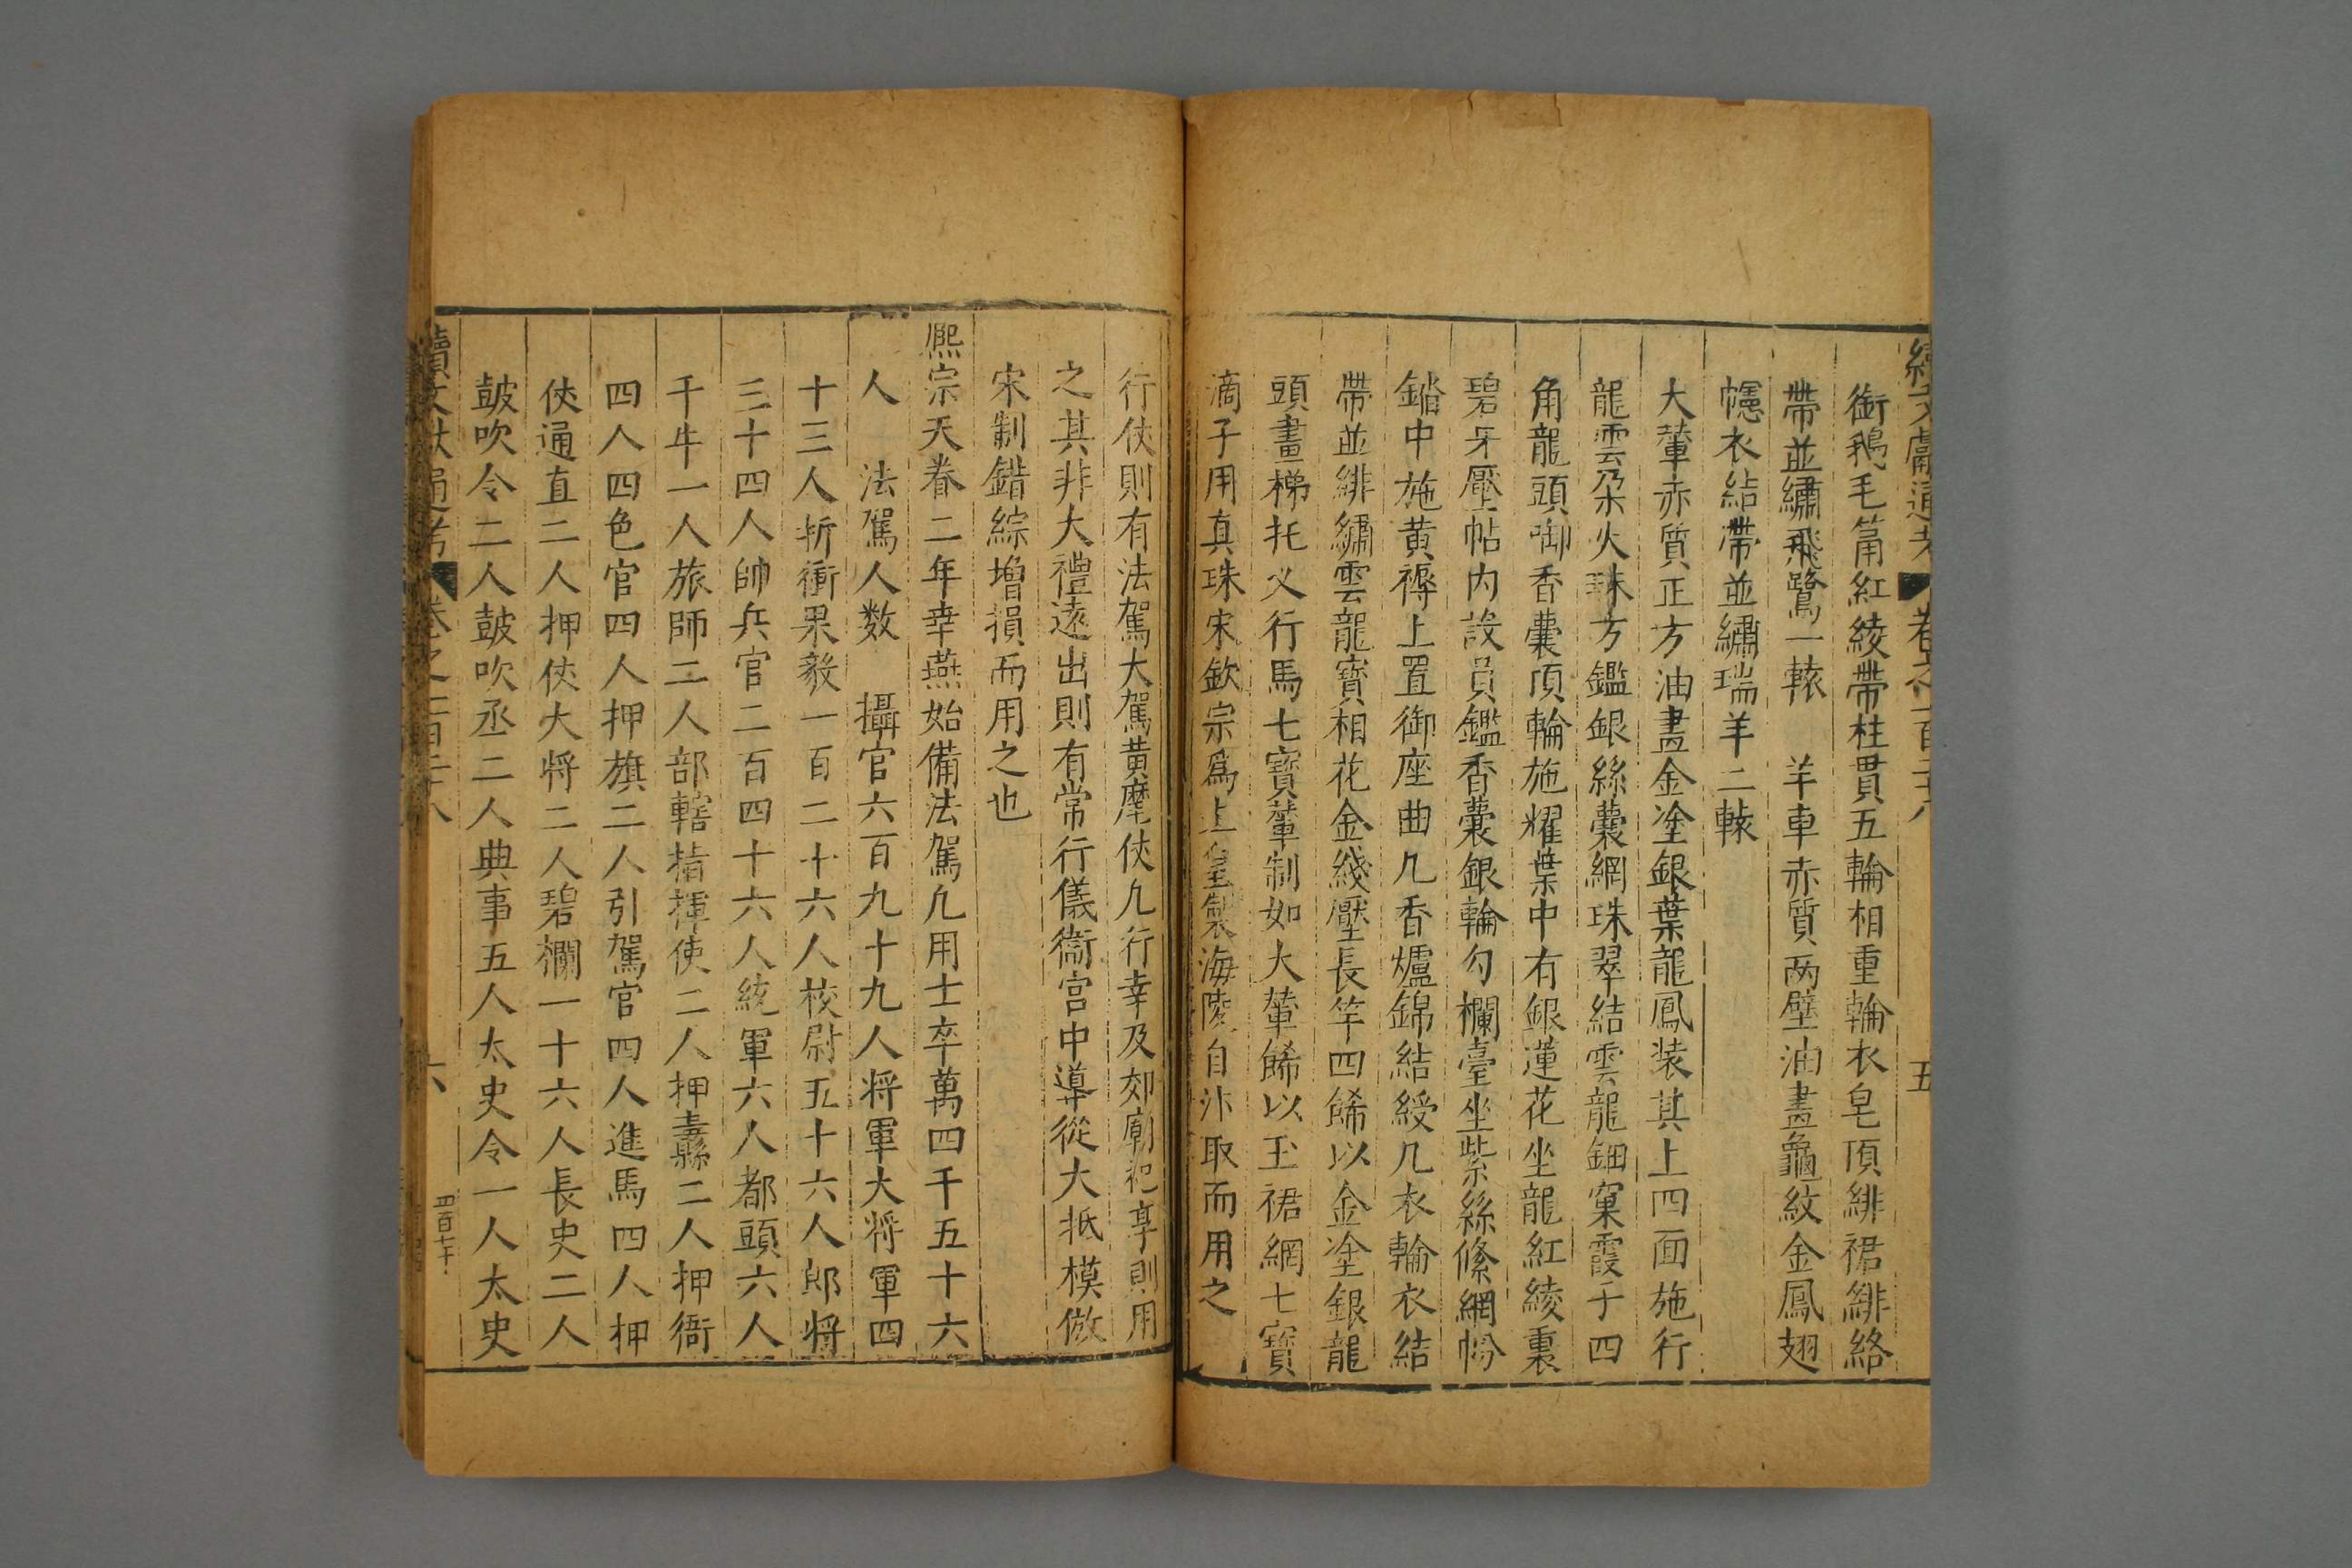 續文獻通考 卷之一百二十八 五
銜鵝毛筩紅綾帶柱貫五輪相重輪衣皂頂緋裙緋絡
帶並繡飛鷺一轅 羊車赤質两壁油畫龜紋金鳳翅
幰衣結帶並繡瑞羊二轅
大輦赤質正方油畫金塗銀葉龍鳳装其上四面施行
龍雲朶火珠方鑑銀絲囊網珠翠結雲龍鈿窠霞于四
角龍頭啣香囊頂輪施耀葉中有銀蓮花坐龍紅綾裏
碧牙壓帖内設員鑑香囊銀輪勾欄臺坐紫絲絛網帉
錔中施黄褥上置御座曲几香爐錦結綬几衣輪衣結
帶並緋繡雲龍寳相花金綫壓長竿四餙以金塗銀龍
頭畫梯托义行馬七寳輦制如大輦餙以玉裙網七寳
滴子用真珠宋欽宗爲上皇製海陵自汴取而用之
行仗則有法駕大駕黄麾仗凢行幸及郊廟祀享則用
之其非大禮遠出則有常行儀衞宫中導從大抵模倣
宋制錯綜増損而用之也
熈宗天眷二年幸燕始備法駕凢用士卒萬四千五十六
人 法駕人数 攝官六百九十九人将軍大将軍四
十三人折衝果毅一百二十六人校尉五十六人郎将
三十四人帥兵官二百四十六人統軍六人都頭六人
千牛一人旅師三人部轄指揮使二人押纛二人押衙
四人四色官四人押旗二人引駕官四人進馬四人押
仗通直二人押仗大将二人碧欄一十六人長史二人
鼓吹令二人鼓吹丞二人典事五人太史令一人太史
續文獻通考 卷之一百二十八 六